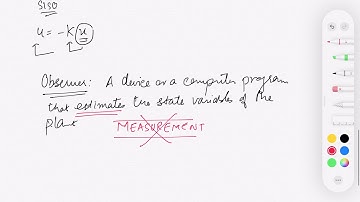 SISO
u = -K x
Observer: A device or a computer program
that estimates the state variables of the
plant
MEASUREMENT